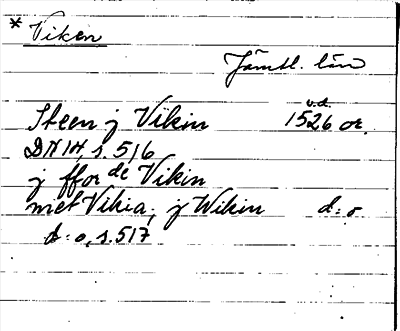 * Viken
Jämtl. län
Steen j Vikin 1526 v.d. or.
DN 14, s. 516
j ffor de Vikin
met Vikia, j Wikin d:o
d:o, s. 517